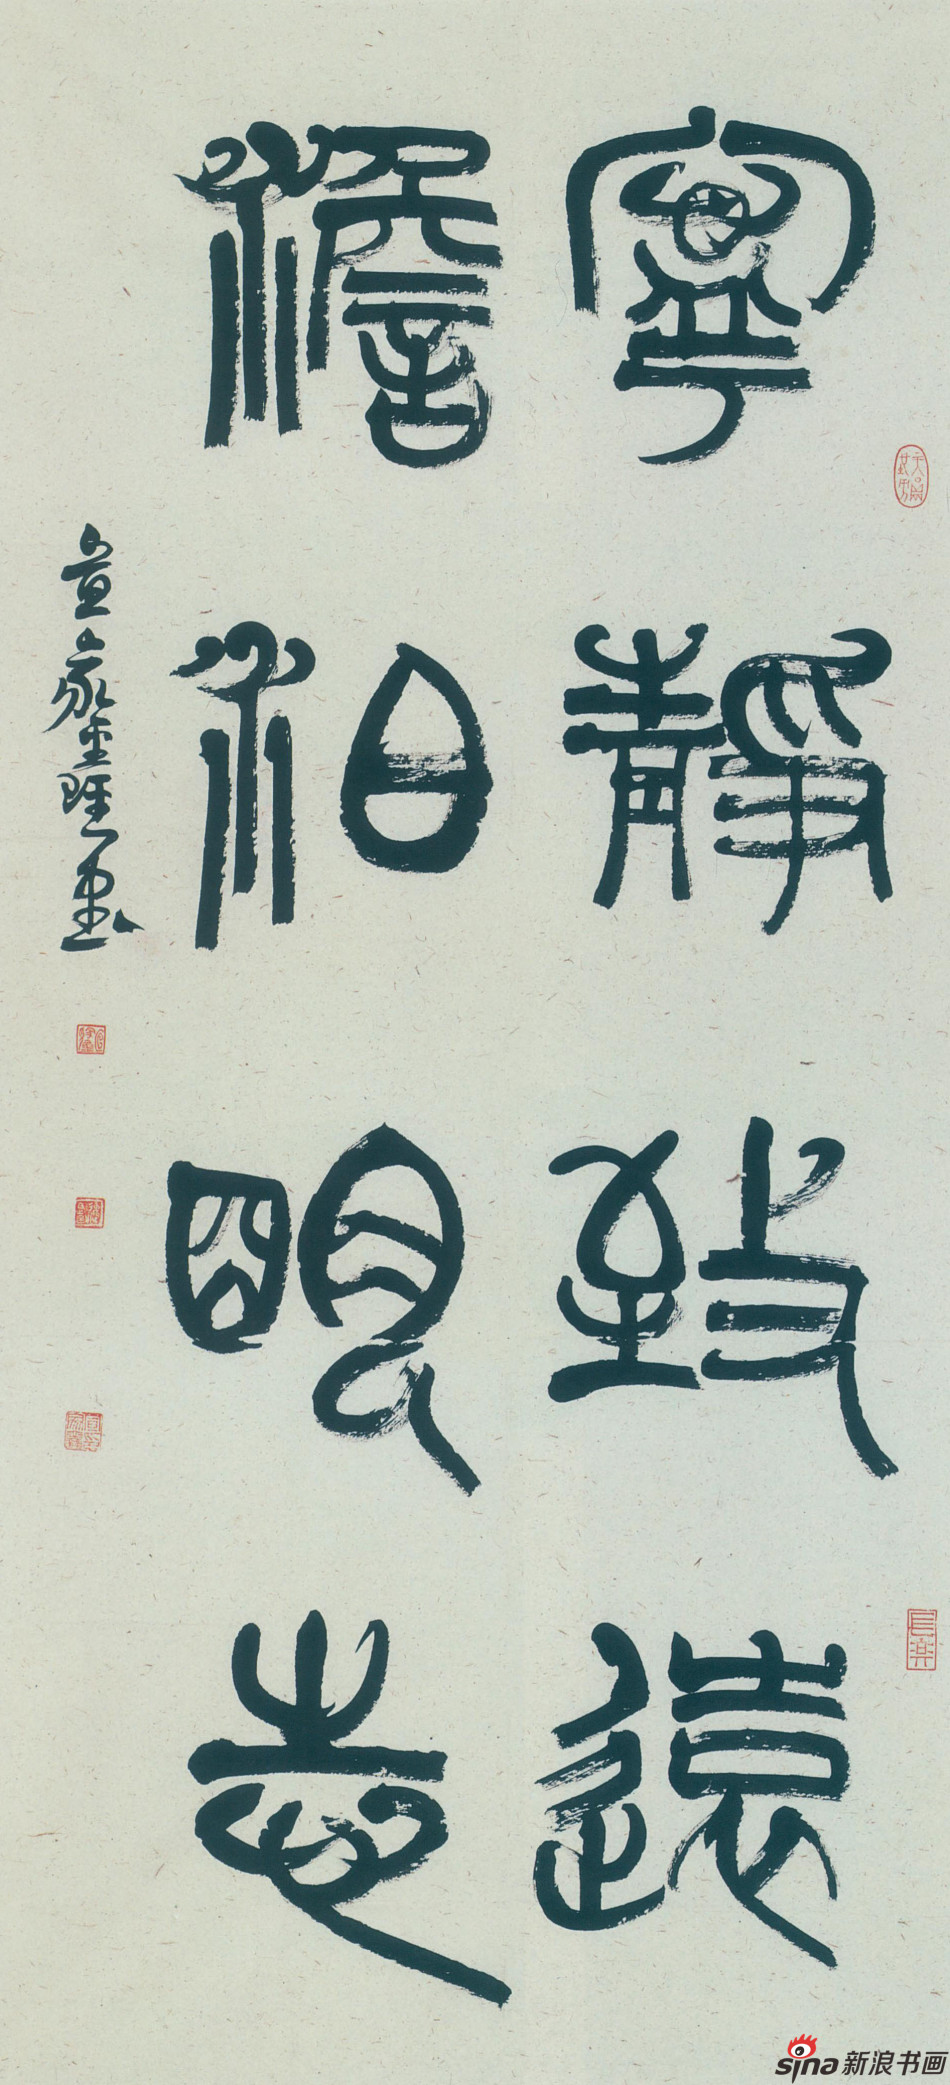 寧靜致遠
澹泊明志
長樂
sina新浪书画